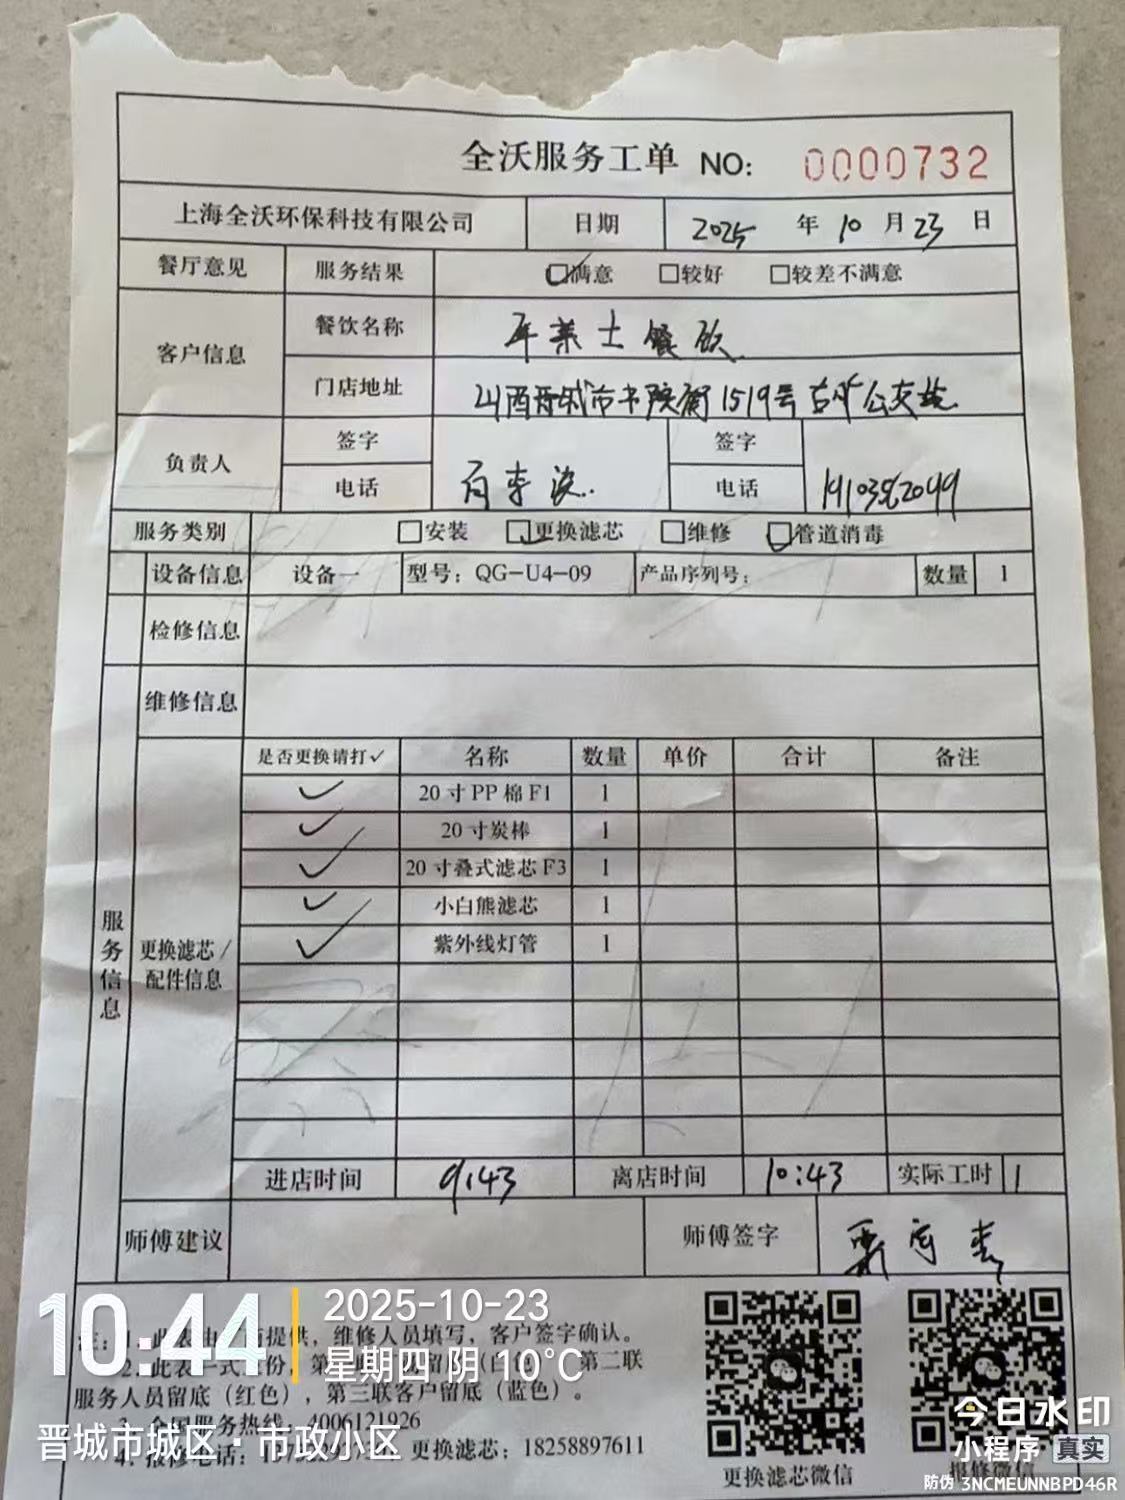 全沃服务工单 NO: 0000732
上海全沃环保科技有限公司 日期 2025 年 10 月 23 日
餐厅意见 服务结果 ☑满意 □较好 □较差不满意
客户信息 餐饮名称 士餐饮
门店地址 山西晋城市书院街1519号 公交站
负责人 签字 签字
电话 电话
服务类别 □安装 ☑更换滤芯 □维修 ☑管道消毒
设备信息 设备一 型号：QG-U4-09 产品序列号： 数量 1
检修信息
维修信息
服务信息
更换滤芯/配件信息
是否更换请打✓ 名称 数量 单价 合计 备注
✓ 20寸PP棉F1 1
✓ 20寸炭棒 1
✓ 20寸叠式滤芯F3 1
✓ 小白熊滤芯 1
✓ 紫外线灯管 1
进店时间 9:43 离店时间 10:43 实际工时 1
师傅建议 师傅签字
注：1、此表由 提供，维修人员填写，客户签字确认。
2、此表一式 份，第 （白色） 第二联
服务人员留底（红色），第三联客户留底（蓝色）。
3、全国服务热线：4006121926
4、报修电话： 更换滤芯：18258897611
更换滤芯微信
报修微信
10:44
2025-10-23
星期四 阴 10°C
晋城市城区·市政小区
今日水印
小程序 真实
防伪 3NCMEUNNBPD46R